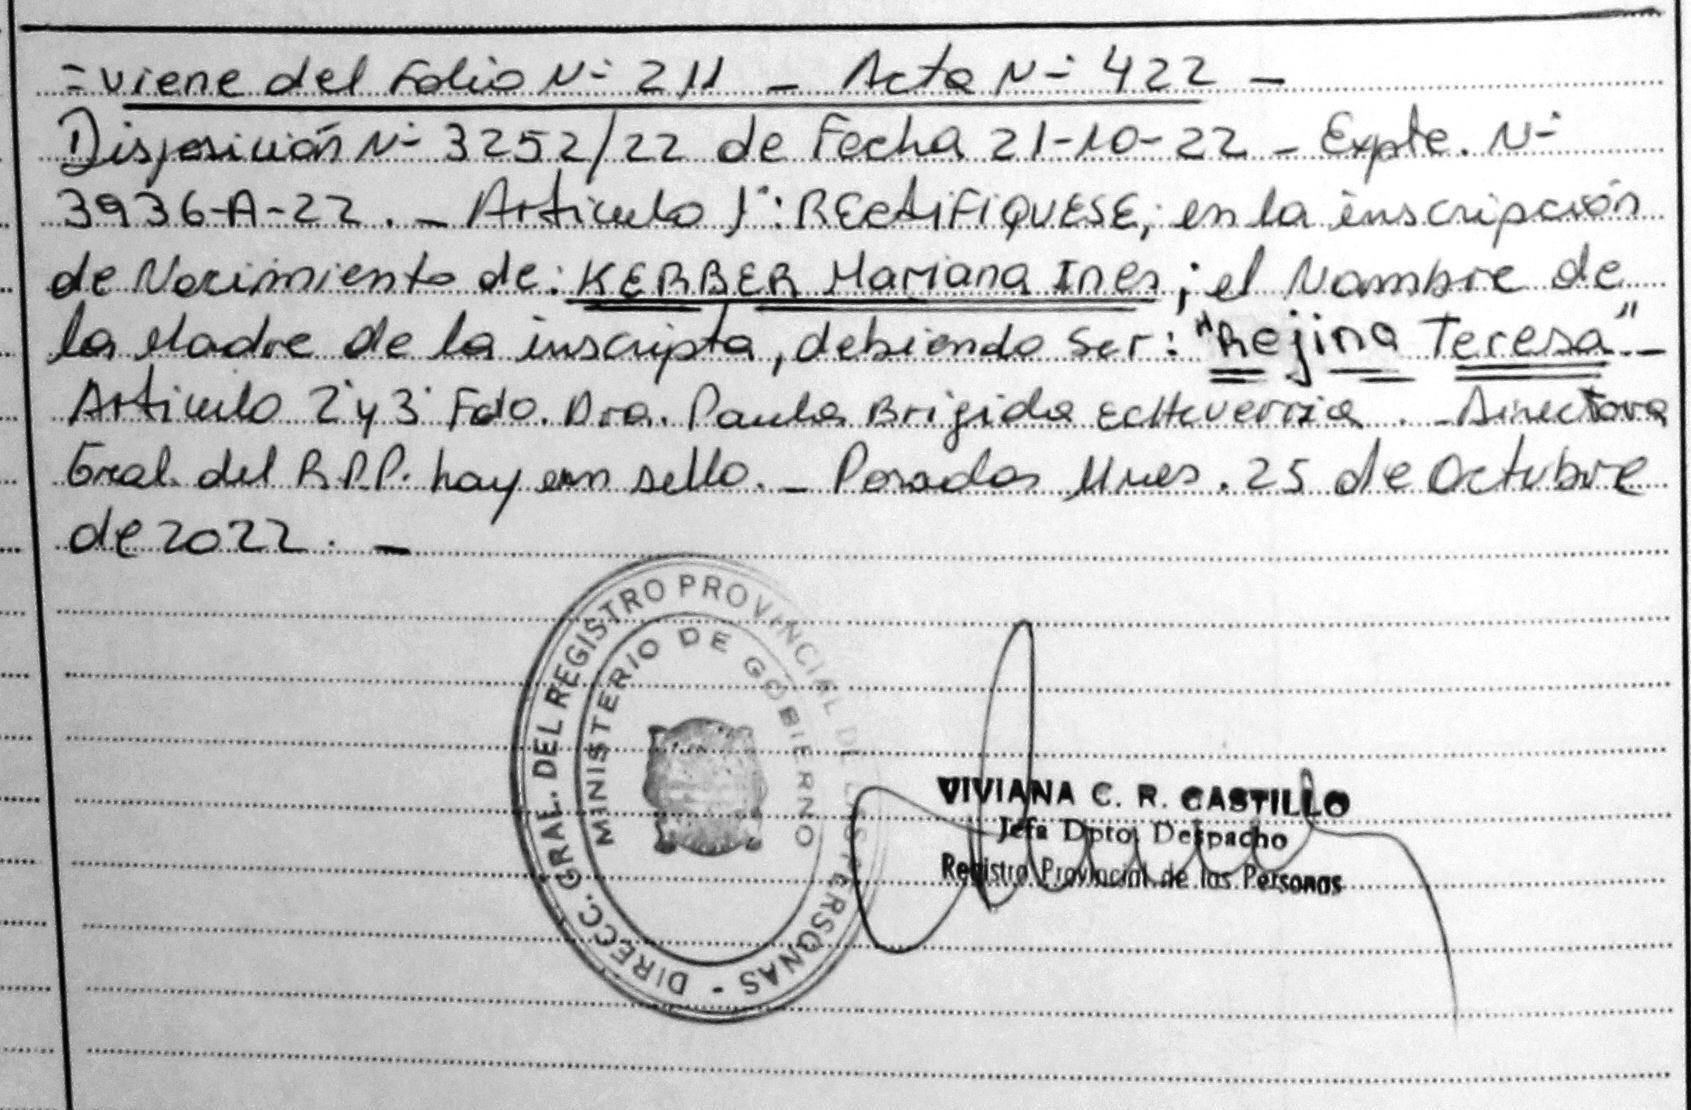 = viene del Folio N- 211 - Acta N- 422 -
Disposición N- 3252/22 de Fecha 21-10-22 - Expte. N-
3936-A-22. - Articulo 1°: RECTIFIQUESE, en la inscripción
de Nacimiento de: KERBER Mariana Ines; el Nombre de
la Madre de la inscripta, debiendo Ser: "Rejina Teresa" -
Articulo 2° y 3° Fdo. Dra. Paula Brigida Echeverria. - Directora
Gral. del R.P.P. hay un sello. - Posadas Mnes. 25 de Octubre
de 2022. -
DIRECC. GRAL. DEL REGISTRO PROVINCIAL DE LAS PERSONAS -
MINISTERIO DE GOBIERNO
VIVIANA C. R. CASTILLO
Jefa Dpto. Despacho
Registro Provincial de las Personas